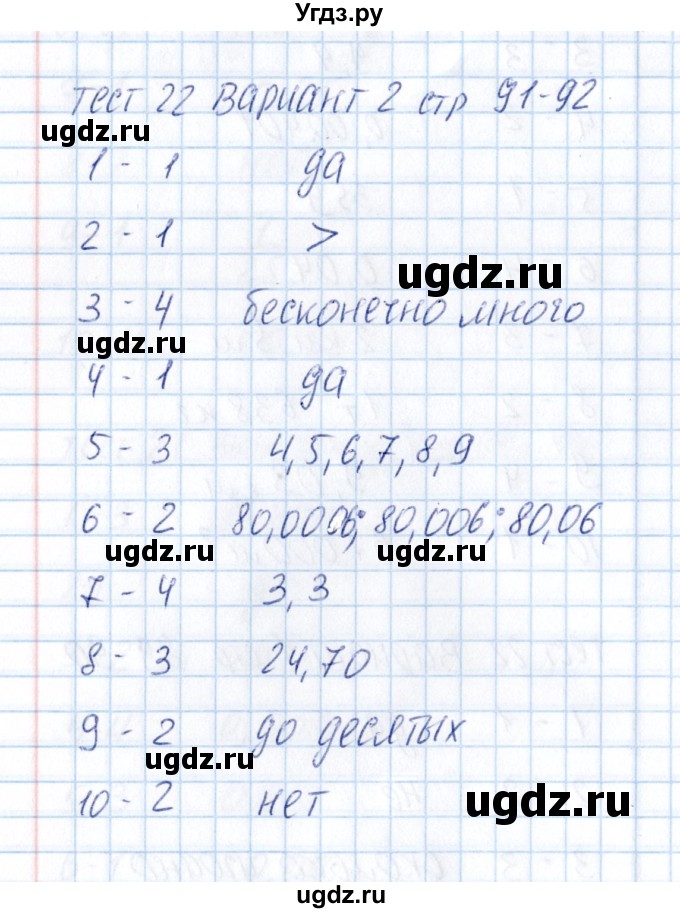 Угдз.ру
тест 22 вариант 2 стр 91-92
ugdz.ru
1 - 1 да
2 - 1 >
ugdz.ru
3 - 4 бесконечно много
ugdz.ru
4 - 1 да
5 - 3 4,5,6,7,8,9
6 - 2 80,0006; 80,006; 80,06
ugdz.ru ugdz.ru
7 - 4 3,3
8 - 3 24,70
9 - 2 до десятых
ugdz.ru
10 - 2 нет
ugdz.ru
ugdz.ru